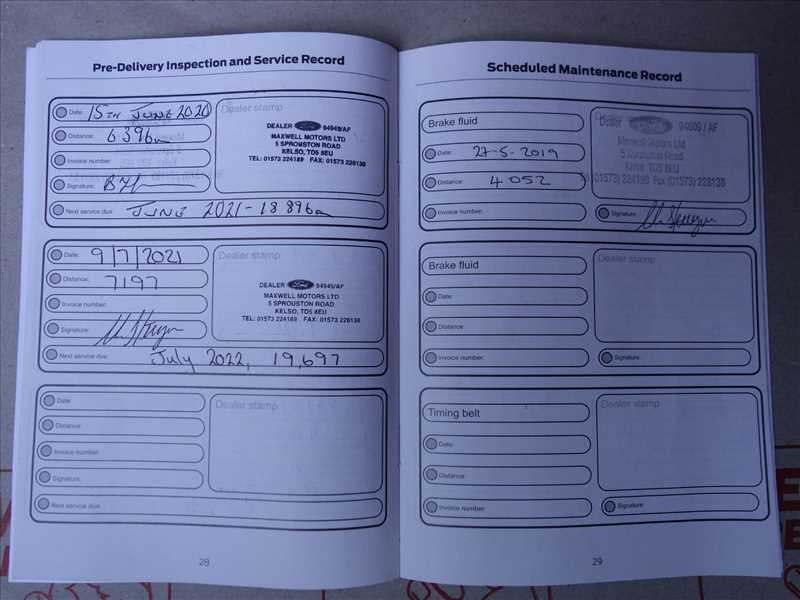 Pre-Delivery Inspection and Service Record
Date: 15TH JUNE 2020
Distance: 6396m
Invoice number:
Signature:
Next service due: JUNE 2021 - 18896m
Dealer stamp
DEALER Ford 94949/AF
MAXWELL MOTORS LTD
5 SPROUSTON ROAD
KELSO, TD5 8EU
TEL: 01573 224189 FAX: 01573 228138
Date: 9/7/2021
Distance: 7197
Invoice number:
Signature:
Next service due: July 2022, 19,697
Dealer stamp
DEALER Ford 94949/AF
MAXWELL MOTORS LTD
5 SPROUSTON ROAD
KELSO, TD5 8EU
TEL: 01573 224189 FAX: 01573 228138
Date:
Distance:
Invoice number:
Signature:
Next service due:
Dealer stamp
28
Scheduled Maintenance Record
Brake fluid
Date: 27-5-2019
Distance: 4052
Invoice number:
Dealer Ford / AF
Maxwell Motors Ltd
5 Sprouston Road
Kelso TD5 8EU
Tel (01573) 224189 Fax (01573) 228138
Signature:
Brake fluid
Date:
Distance:
Invoice number:
Dealer stamp
Signature:
Timing belt
Date:
Distance:
Invoice number:
Dealer stamp
Signature:
29